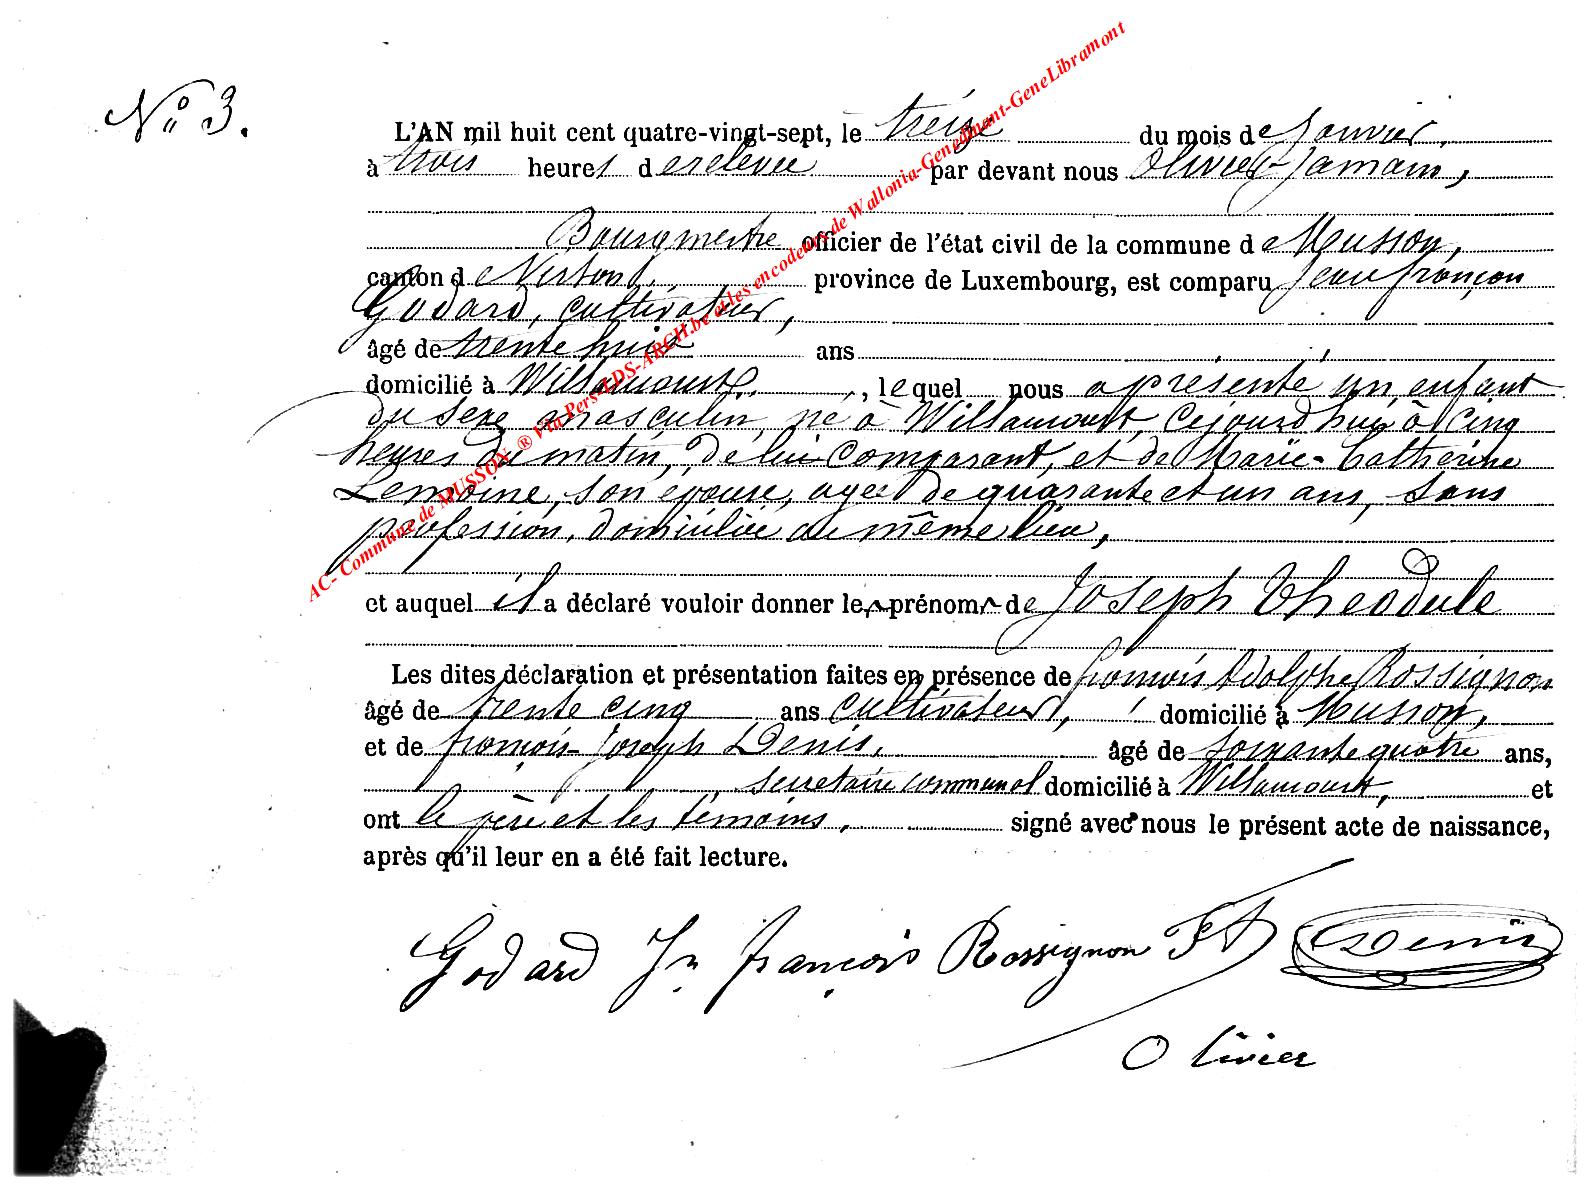 N° 3.
L'AN mil huit cent quatre-vingt-sept, le treize du mois de Janvier,
à trois heures de relevée par devant nous Olivier Jamain,
Bourgmestre officier de l'état civil de la commune de Musson,
canton de Virton, province de Luxembourg, est comparu Jean françois
Godard, cultivateur,
âgé de trente huit ans
domicilié à Willancourt, lequel nous a présenté un enfant
du sexe masculin, né à Willancourt, cejourd'hui à cinq
heures du matin, de lui comparant, et de Marie-Catherine
Lemoine, son épouse, agée de quarante et un ans, sans
profession, domiciliée au même lieu,
et auquel il a déclaré vouloir donner les prénoms de Joseph Théodule
Les dites déclaration et présentation faites en présence de françois Adolphe Rossignon
âgé de trente cinq ans cultivateur, domicilié à Musson,
et de françois Joseph Denis, âgé de soixante quatre ans,
secretaire communal domicilié à Willancourt, et
ont le père et les témoins, signé avec nous le présent acte de naissance,
après qu'il leur en a été fait lecture.
Godard Jn françois Rossignon FA Denis
Olivier
AC- Commune de MUSSON ® Via Pers LDS-ARCH.be et les encodeurs de Wallonia-Genedinant-GeneLibramont